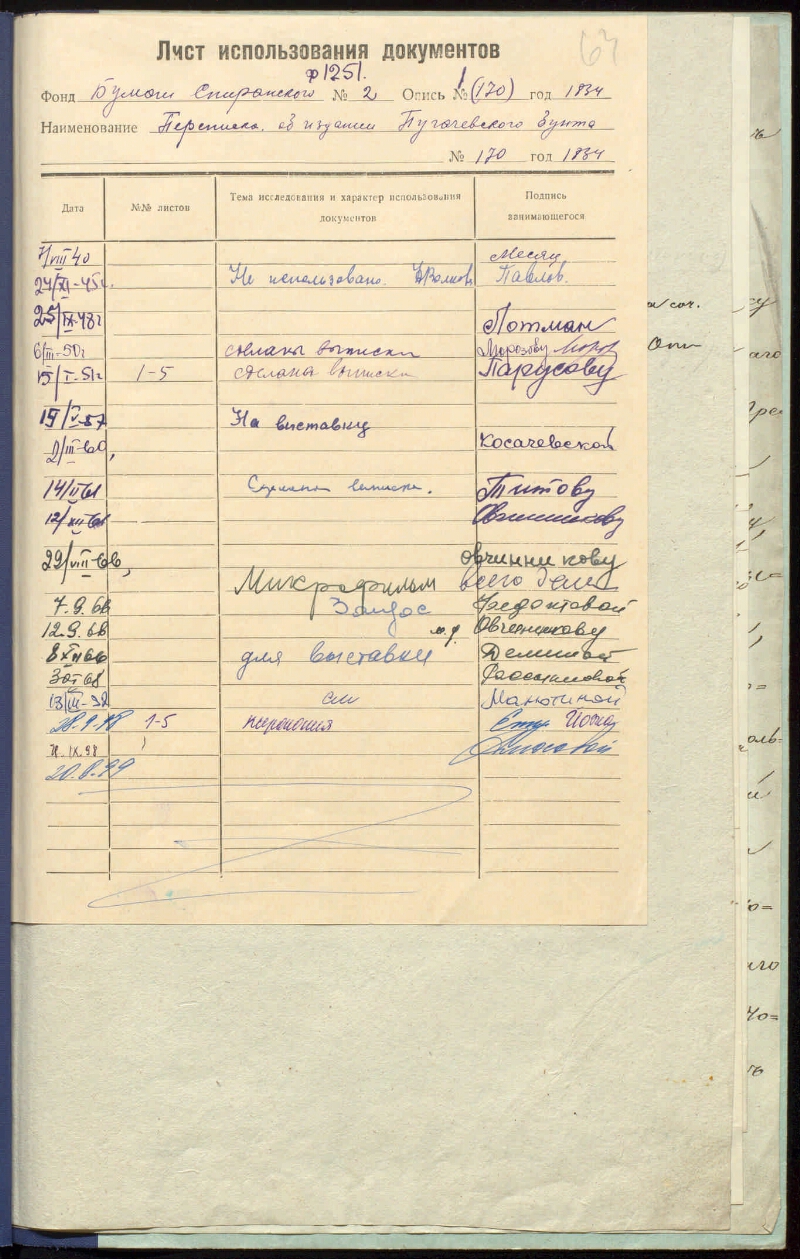 64
Лист использования документов
ф1251.
Фонд Бумаги Сперанского № 2 Опись № 1 (170) год 1834
Наименование Переписка об издании Пугачевского бунта
№ 170 год 1834
Дата №№ листов Тема исследования и характер использования документов Подпись занимающегося
7/VIII 40 Месяц
24/XI-45г. Не использовано. Павлов.
25/IX-48г Лотман
6/III-50г сделаны выписки Морозову
15/I-51г 1-5 сделаны выписки Парусову
15/V-57 На выставку
2/III-60, Косачевской
14/II-61 Сделаны выписки. Титову
12/XII-61 Овчинникову
29/VIII-66, Овчинникову
Микрофильм всего дела
7.9.66 Заказ Федоктовой
12.9.66 м.ф. Овчинникову
8 XII 66 для выставки Деминой
30 68
13/III-92 см Манютиной
28.9.98 1-5 ксерокопия
21.IX.98
20.8.99
а соч.
Опи